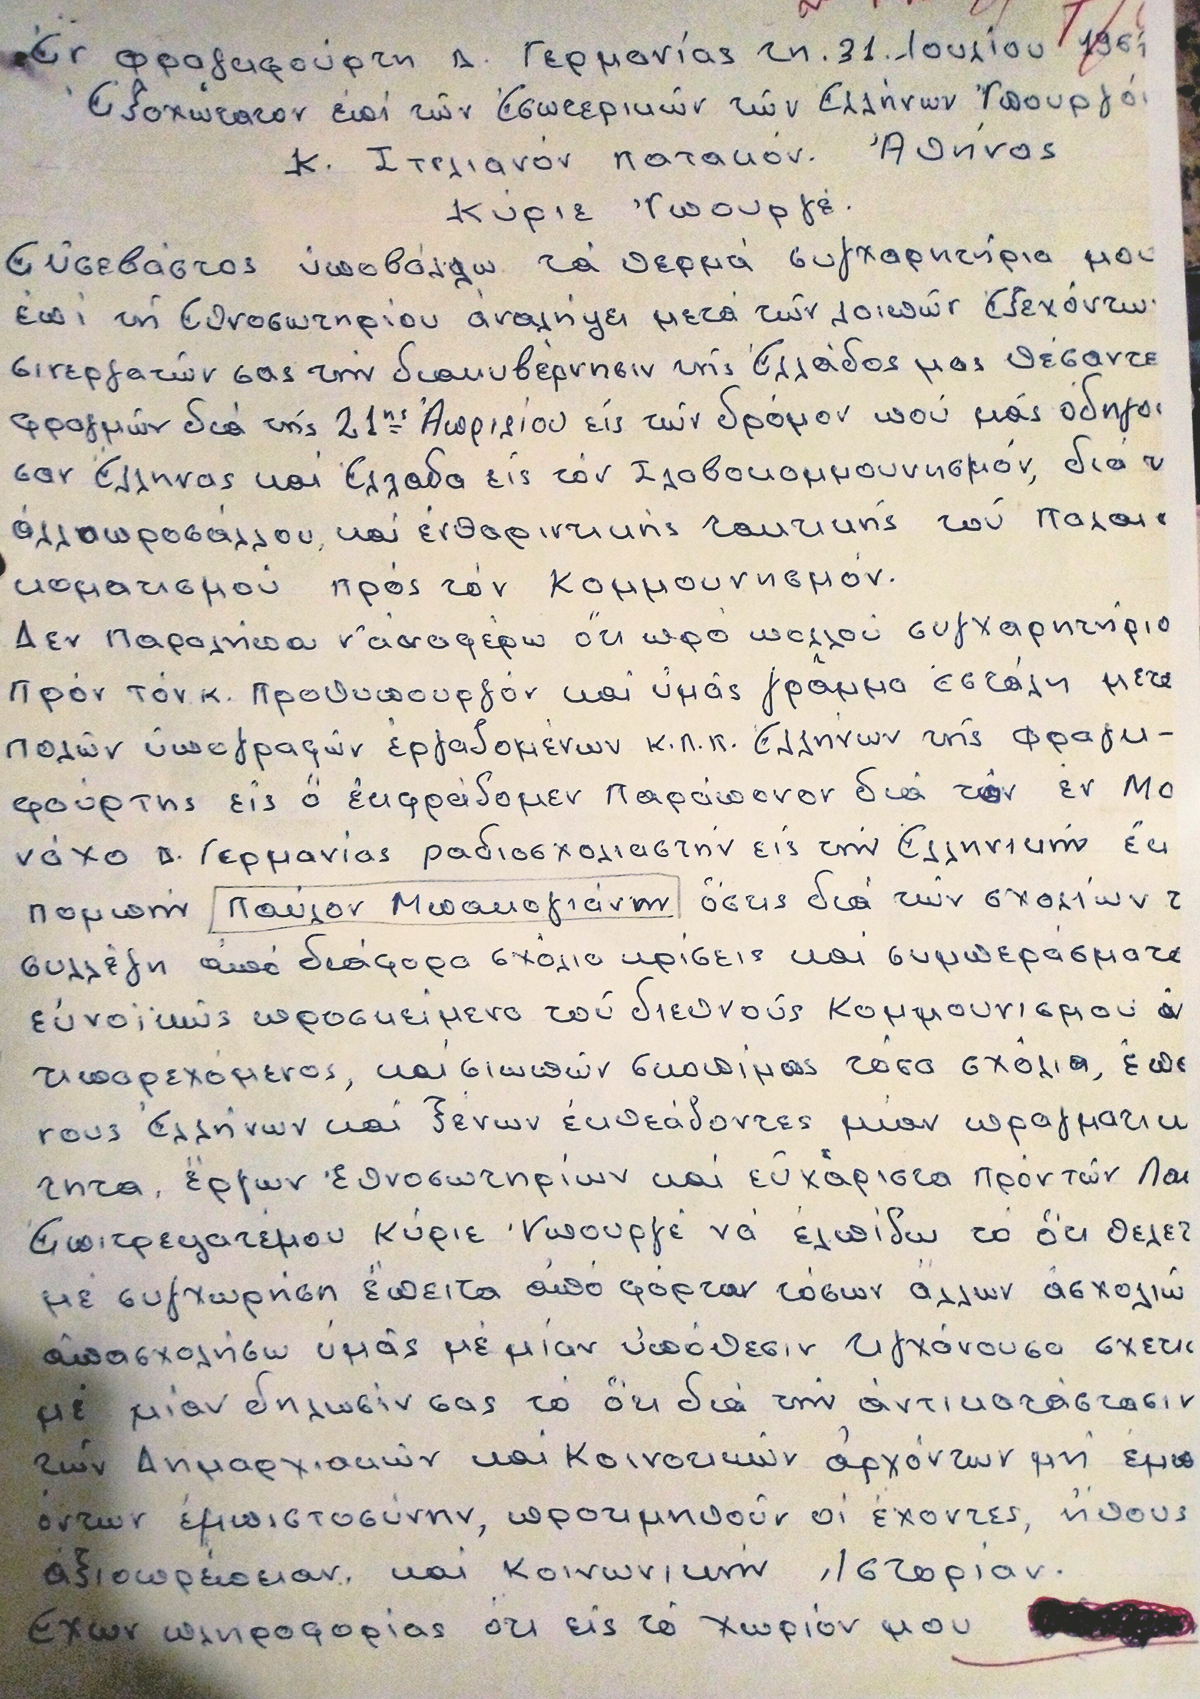 Ἐν φραγκφούρτη Δ. Γερμανίας τη. 31. Ἰουλίου 196
Ἐξοχώτατον ἐπί τῶν Ἐσωτερικῶν τῶν Ἑλλήνων Ὑπουργό
Κ. Στελιανόν Πατακόν. Ἀθήνας
Κύριε Ὑπουργέ.
Εὐσεβάστος ὑποβάλλω τά θερμά συγχαρητήρια μου
ἐπί τῆ Ἐθνοσωτηρίου ἀναλήψει μετά τῶν λοιπῶν Ἐξεχόντω
σινεργατῶν σας τήν διακυβέρνησιν τῆς Ἑλλάδος μας θέσαντε
φραγμῶν διά τῆς 21ης Ἀπριλίου εἰς τῶν δρόμον πού μᾶς ὁδηγο
σαν Ἕλληνας καί Ἑλλαδα εἰς τόν Σλαβοκομμουνησμόν, διά τ
ἀλλοπροσάλλου, καί ἐνθαριντικῆς τακτικῆς τοῦ Παλαι
κοματισμοῦ πρός τόν Κομμουνησμόν.
Δεν Παραλήπω ν' ἀναφέρω ὅτι πρό πολλοῦ συγχαρητήριο
Πρόν τόν κ. Προθυπουργόν καί ὑμᾶς γρᾶμμα ἐστάλη μετα
Πολῶν ὑπογραφῶν ἐργαζομένων κ.λ.π. Ἑλλήνων τῆς Φραγκ-
φούρτης εἰς ὅ ἐκφράζομεν Παράπονον διά τον ἐν Μο
νάχο Δ. Γερμανίας ραδιοσχολιαστήν εἰς τήν Ἑλληνικήν ἐκ
πομπήν Παῦλον Μπακογιάννην ὅστις διά τῶν σχολίων τ
συλλέγη ἀπό διάφορα σχόλια κρίσεις και συμπεράσματα
εὐνοϊκῶς προσκείμενα τοῦ διεθνούς Κομμουνισμου ἀν
τιπαρεχόμενος, καί σιωπῶν σκοπίμως τόσα σχόλια, ἐπε
νους Ἑλλήνων καί ξένων ἐκθεάζοντες μίαν πραγματικ
τητα, ἔργων Ἐθνοσωτηρίων καί εὐχάριστα πρόν τῶν Λαι
Ἐπιτρεψατέμου Κύριε Ὑπουργέ νά ἐλπίζω τό ὅτι θελετ
μέ συγχωρήση ἔπειτα ἀπό φόρτον τόσων ἄλλων ἀσχολιῶ
ἀπασχολήσω ὑμᾶς μέ μίαν ὑπόθεσιν τιγχάνουσα σχετικ
μέ μίαν δηλωσίν σας τό ὅτι διά τήν ἀντικατάστασιν
τῶν Δημαρχιακῶν καί Κοινοτικῶν ἀρχόντων μή ἐμπ
όντων ἐμπιστοσύνην, προτιμηθοῦν οἱ ἔχοντες, ἤθους
ἀξιοπρέπειαν, καί Κοινωνικήν Ἱστορίαν.
Ἐχων πληροφορίας ὅτι εἰς τό χωρίόν μου